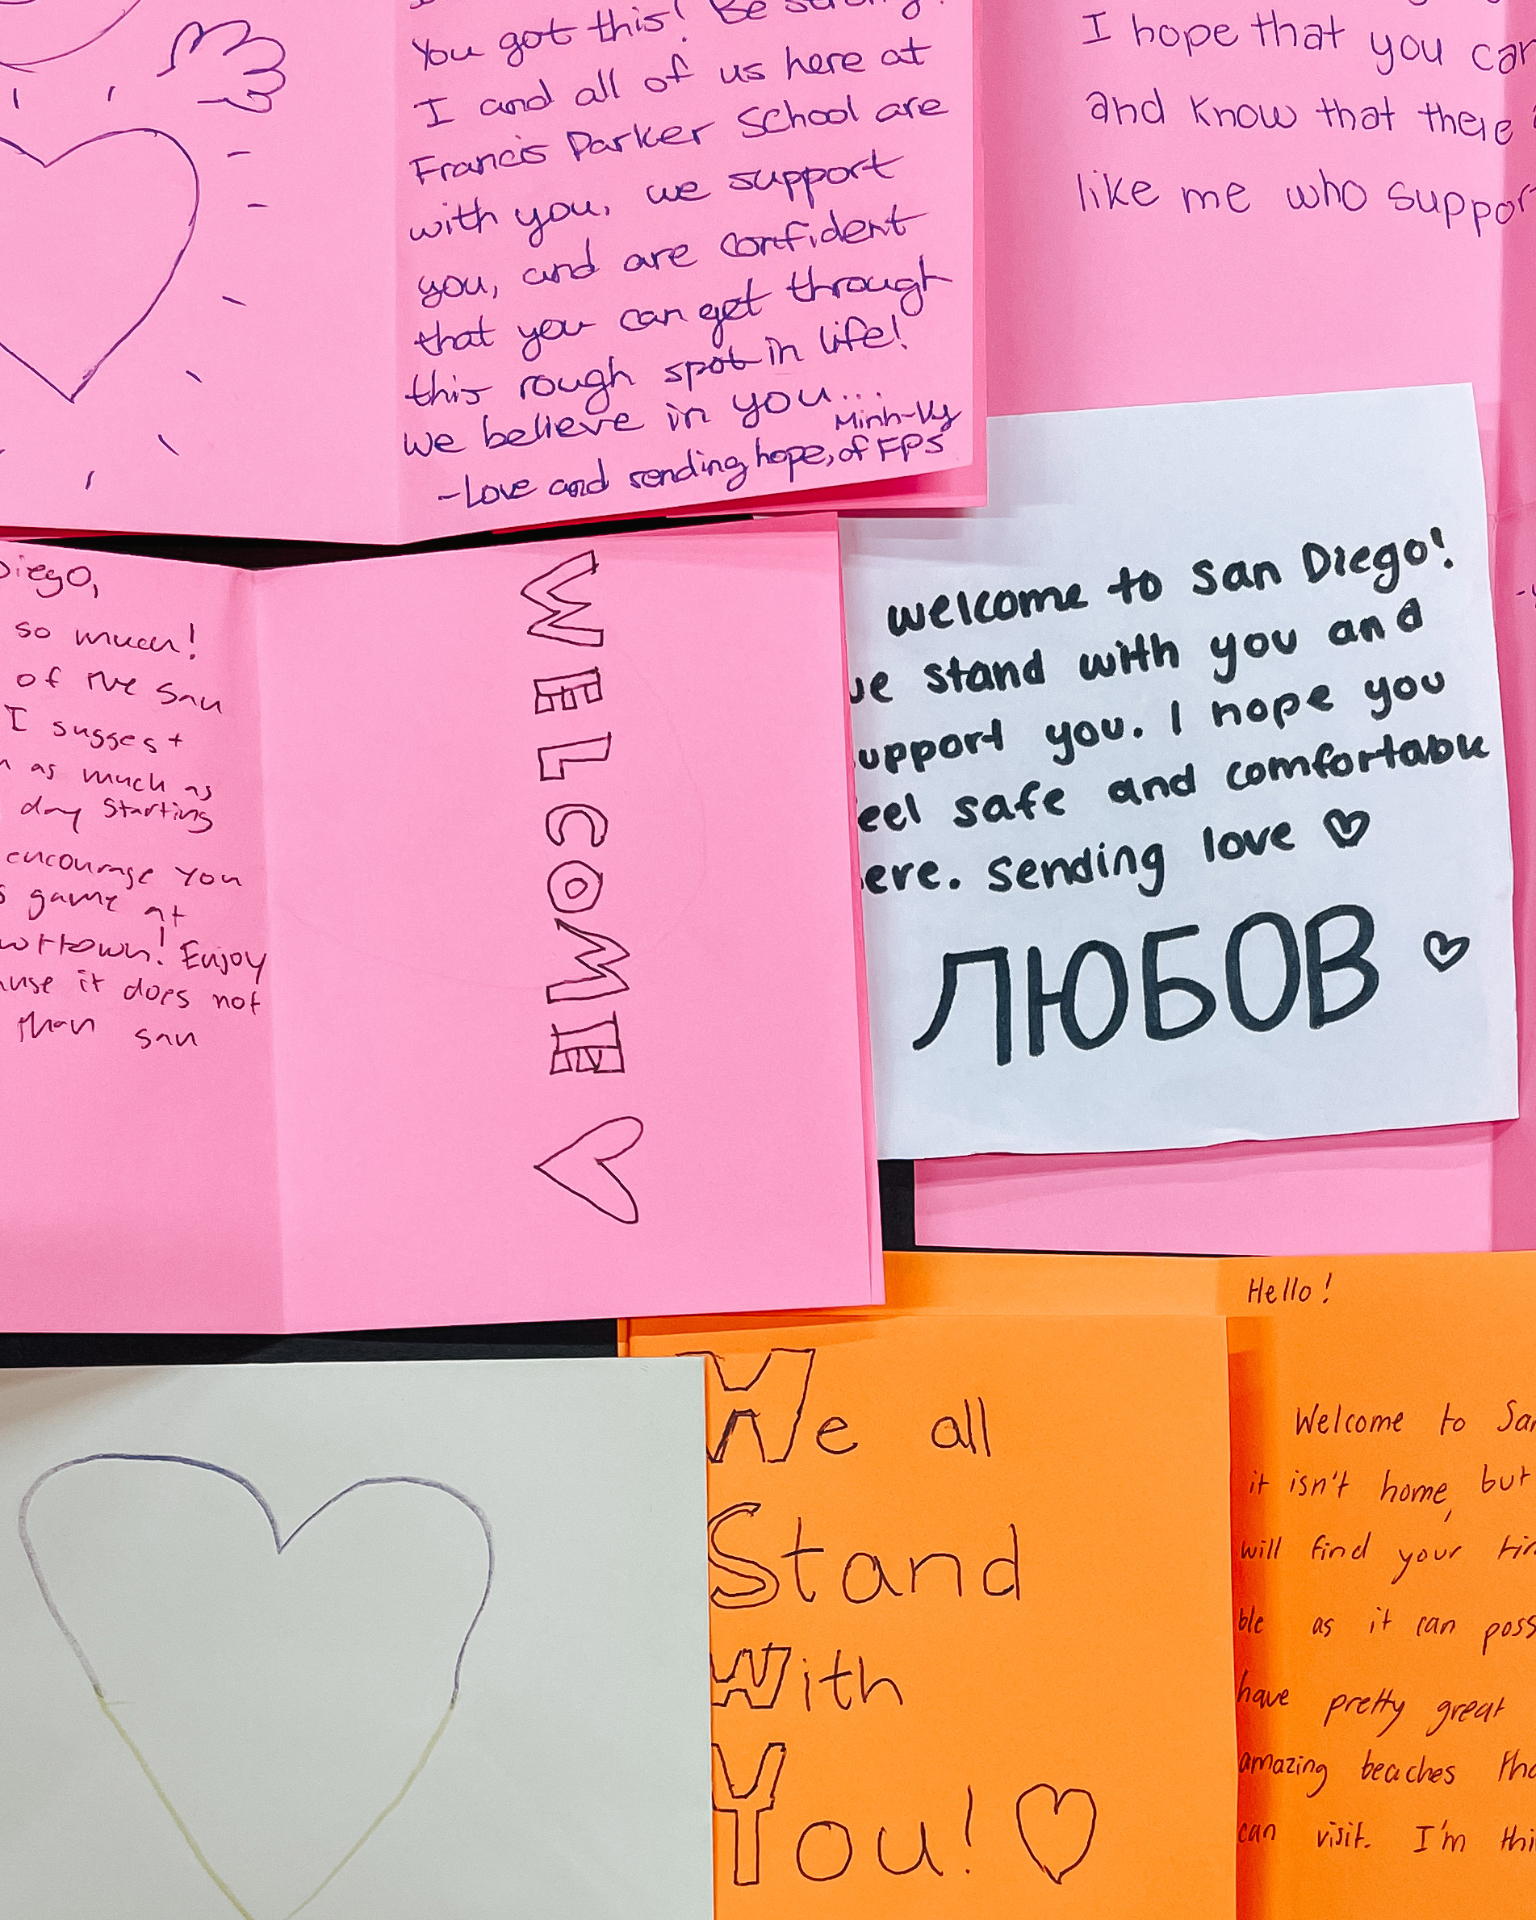 You got this! Be strong!
I and all of us here at
Francis Parker School are
with you, we support
you, and are confident
that you can get through
this rough spot in life!
we believe in you...
Minh-Vy
-Love and sending hope, of FPS
I hope that you can
and know that there
like me who support
Diego,
so much!
of the San
I suggest
as much as
day starting
encourage you
game at
Enjoy
it does not
than San
WELCOME
welcome to San Diego!
we stand with you and
support you. I hope you
feel safe and comfortable
here. Sending love
ЛЮБОВ
We all
Stand
With
You!
Hello!
Welcome to San
it isn't home, but
will find your
ble as it can poss
have pretty great
amazing beaches tha
can visit. I'm thi